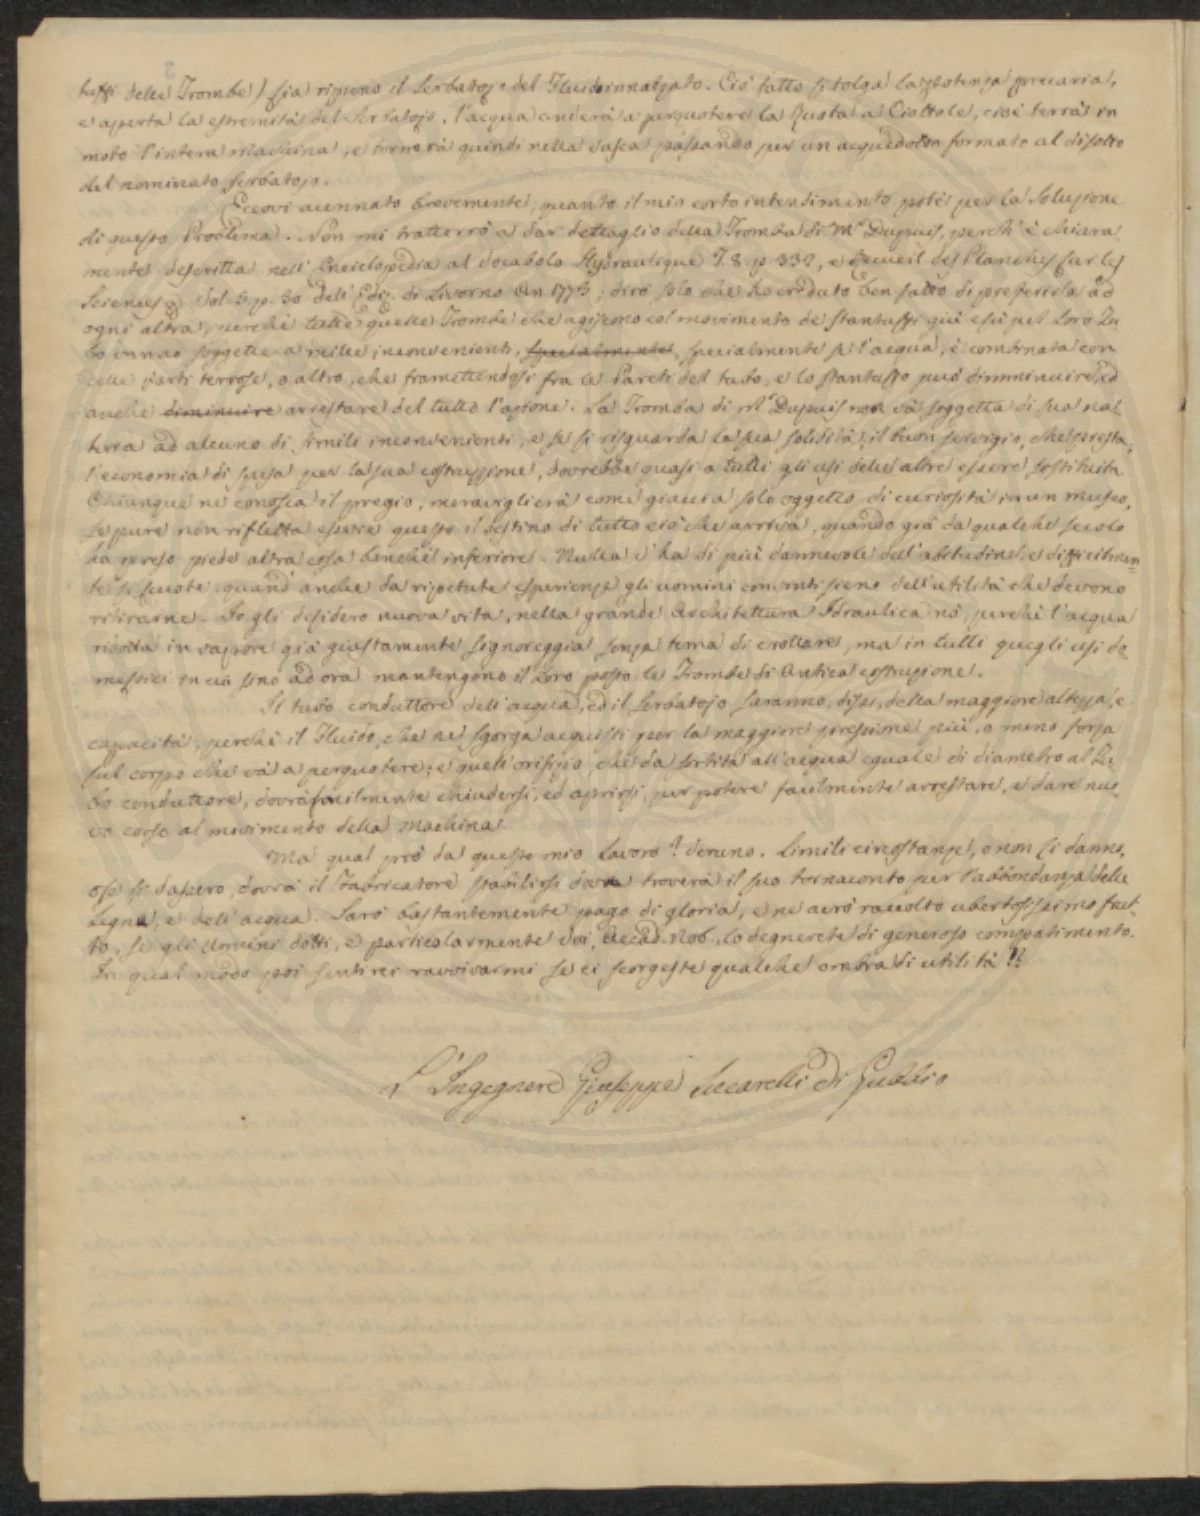 tuffi delle Trombe) sia ripieno il Serbatojo del Fluido innalzato. Ciò fatto si tolga la potenza precaria,
e aperta la estremità del Serbatojo, l'acqua anderà a perquotere la Ruota a Ciottole, cioè terrà in
moto l'intera machina, e tornerà quindi nella vasca passando per un acquedotto formato al disotto
del nominato Serbatojo.
Eccovi accennato brevemente, quanto il mio corto intendimento potèi per la Soluzione
di questo Problema. Non mi tratterrò a dar dettaglio della Tromba di Mr Dupuis, perchè è chiara
mente descritta nell'Enciclopedia al vocabolo Hydraulique T. 8. p. 332, e Recueil des Planches sur les
Sciences Vol. 5. p. 30 dell'Ediz. di Livorno An 1775; dirò solo che ho creduto ben fatto di preferirla ad
ogni altra, perchè tutte quelle Trombe che agiscono col movimento de' stantuffi quà e sù pel Loro Tu
bo vanno soggette a mille inconvenienti, specialmente, specialmente se l'acqua, è combinata con
delle parti terrose, o altro, che framettendosi fra le Pareti del tubo, e lo stantuffo può diminuire, ed
anche diminuire arrestare del tutto l'azione. La Tromba di Mr Dupuis non và soggetta di sua na
tura ad alcuno di simili inconvenienti, e se si risguarda la sua solidità, il buon servigio, che presta,
l'economia di spesa per la sua costruzione, dovrebbe quasi a tutti gli usi delle altre essere sostituita
Chiunque ne conosca il pregio, meraviglierà come giaccia solo oggetto di curiosità in un museo,
se pure non rifletta essere questo il destino di tutto ciò che arriva, quando già da qualche secolo
ha preso piede altra cosa benchè inferiore. Nulla v'ha di più dannevole dell'abitudine, e difficilmen=
te si scuote quand'anche da ripetute esperienze gli uomini convinti sieno dell'utilità che devono
ritirarne. Io gli desidero nuova vita, nella grande Architettura Idraulica nò, perchè l'acqua
ridotta in vapore già giustamente signoreggia senza tema di crollare, ma in tutti quegli usi do
mestici in cui fino ad ora mantengono il Loro posto le Trombe di Antica costruzione.
Il tubo conduttore dell'acqua, ed il Serbatojo saranno, dissi, della maggiore altezza, e
capacità, perchè il Fluido, che ne sgorga acquisti per la maggiore pressione più, o meno forza
sul corpo che và a perquotere; e quell'orifizio, che dà sortita all'acqua eguale di diametro al Tu=
bo conduttore, dovrà facilmente chiudersi, ed aprirsi, per potere facilmente arrestare, e dare nuo=
vo corso al movimento della Machina.
Ma qual prò da questo mio Lavoro? Veruno. Simili circostanze, o non si danno,
o se si dassero, dovrà il Fabricatore stabilirsi dove troverà il suo tornaconto per l'abbondanza delle
Legna, e dell'acqua. Sarò bastantemente pago di gloria, e ne avrò raccolto ubertosissimo frut=
to, se gli Uomini dotti, e particolarmente Voi, Accad. Nob., lo degnerete di generoso compatimento.
In qual modo poi sentirei ravvivarmi se ci scorgeste qualche ombra di utilità!!
L'Ingegnere Giuseppe Lucarelli di Gubbio